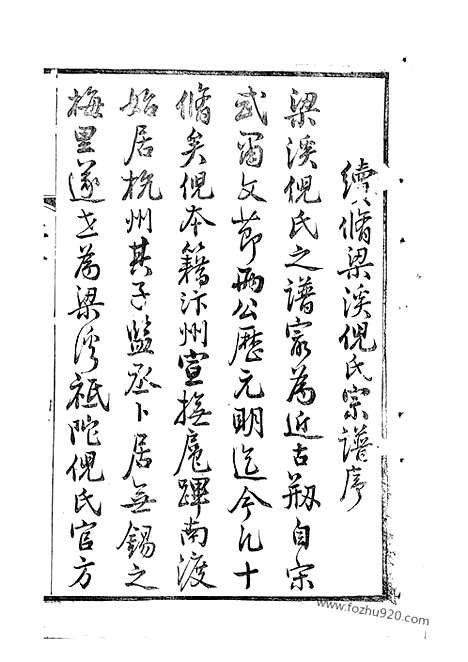 續脩梁溪倪氏宗譜序
梁溪倪氏之譜㝡為近古剏自宋
武甯文節兩公歷元明迄今凡十
脩矣倪本籍汴州宣撫扈蹕南渡
始居杭州其子監丞卜居無錫之
梅里遂世為梁溪祗陀倪氏官方
www.fozhu920.com